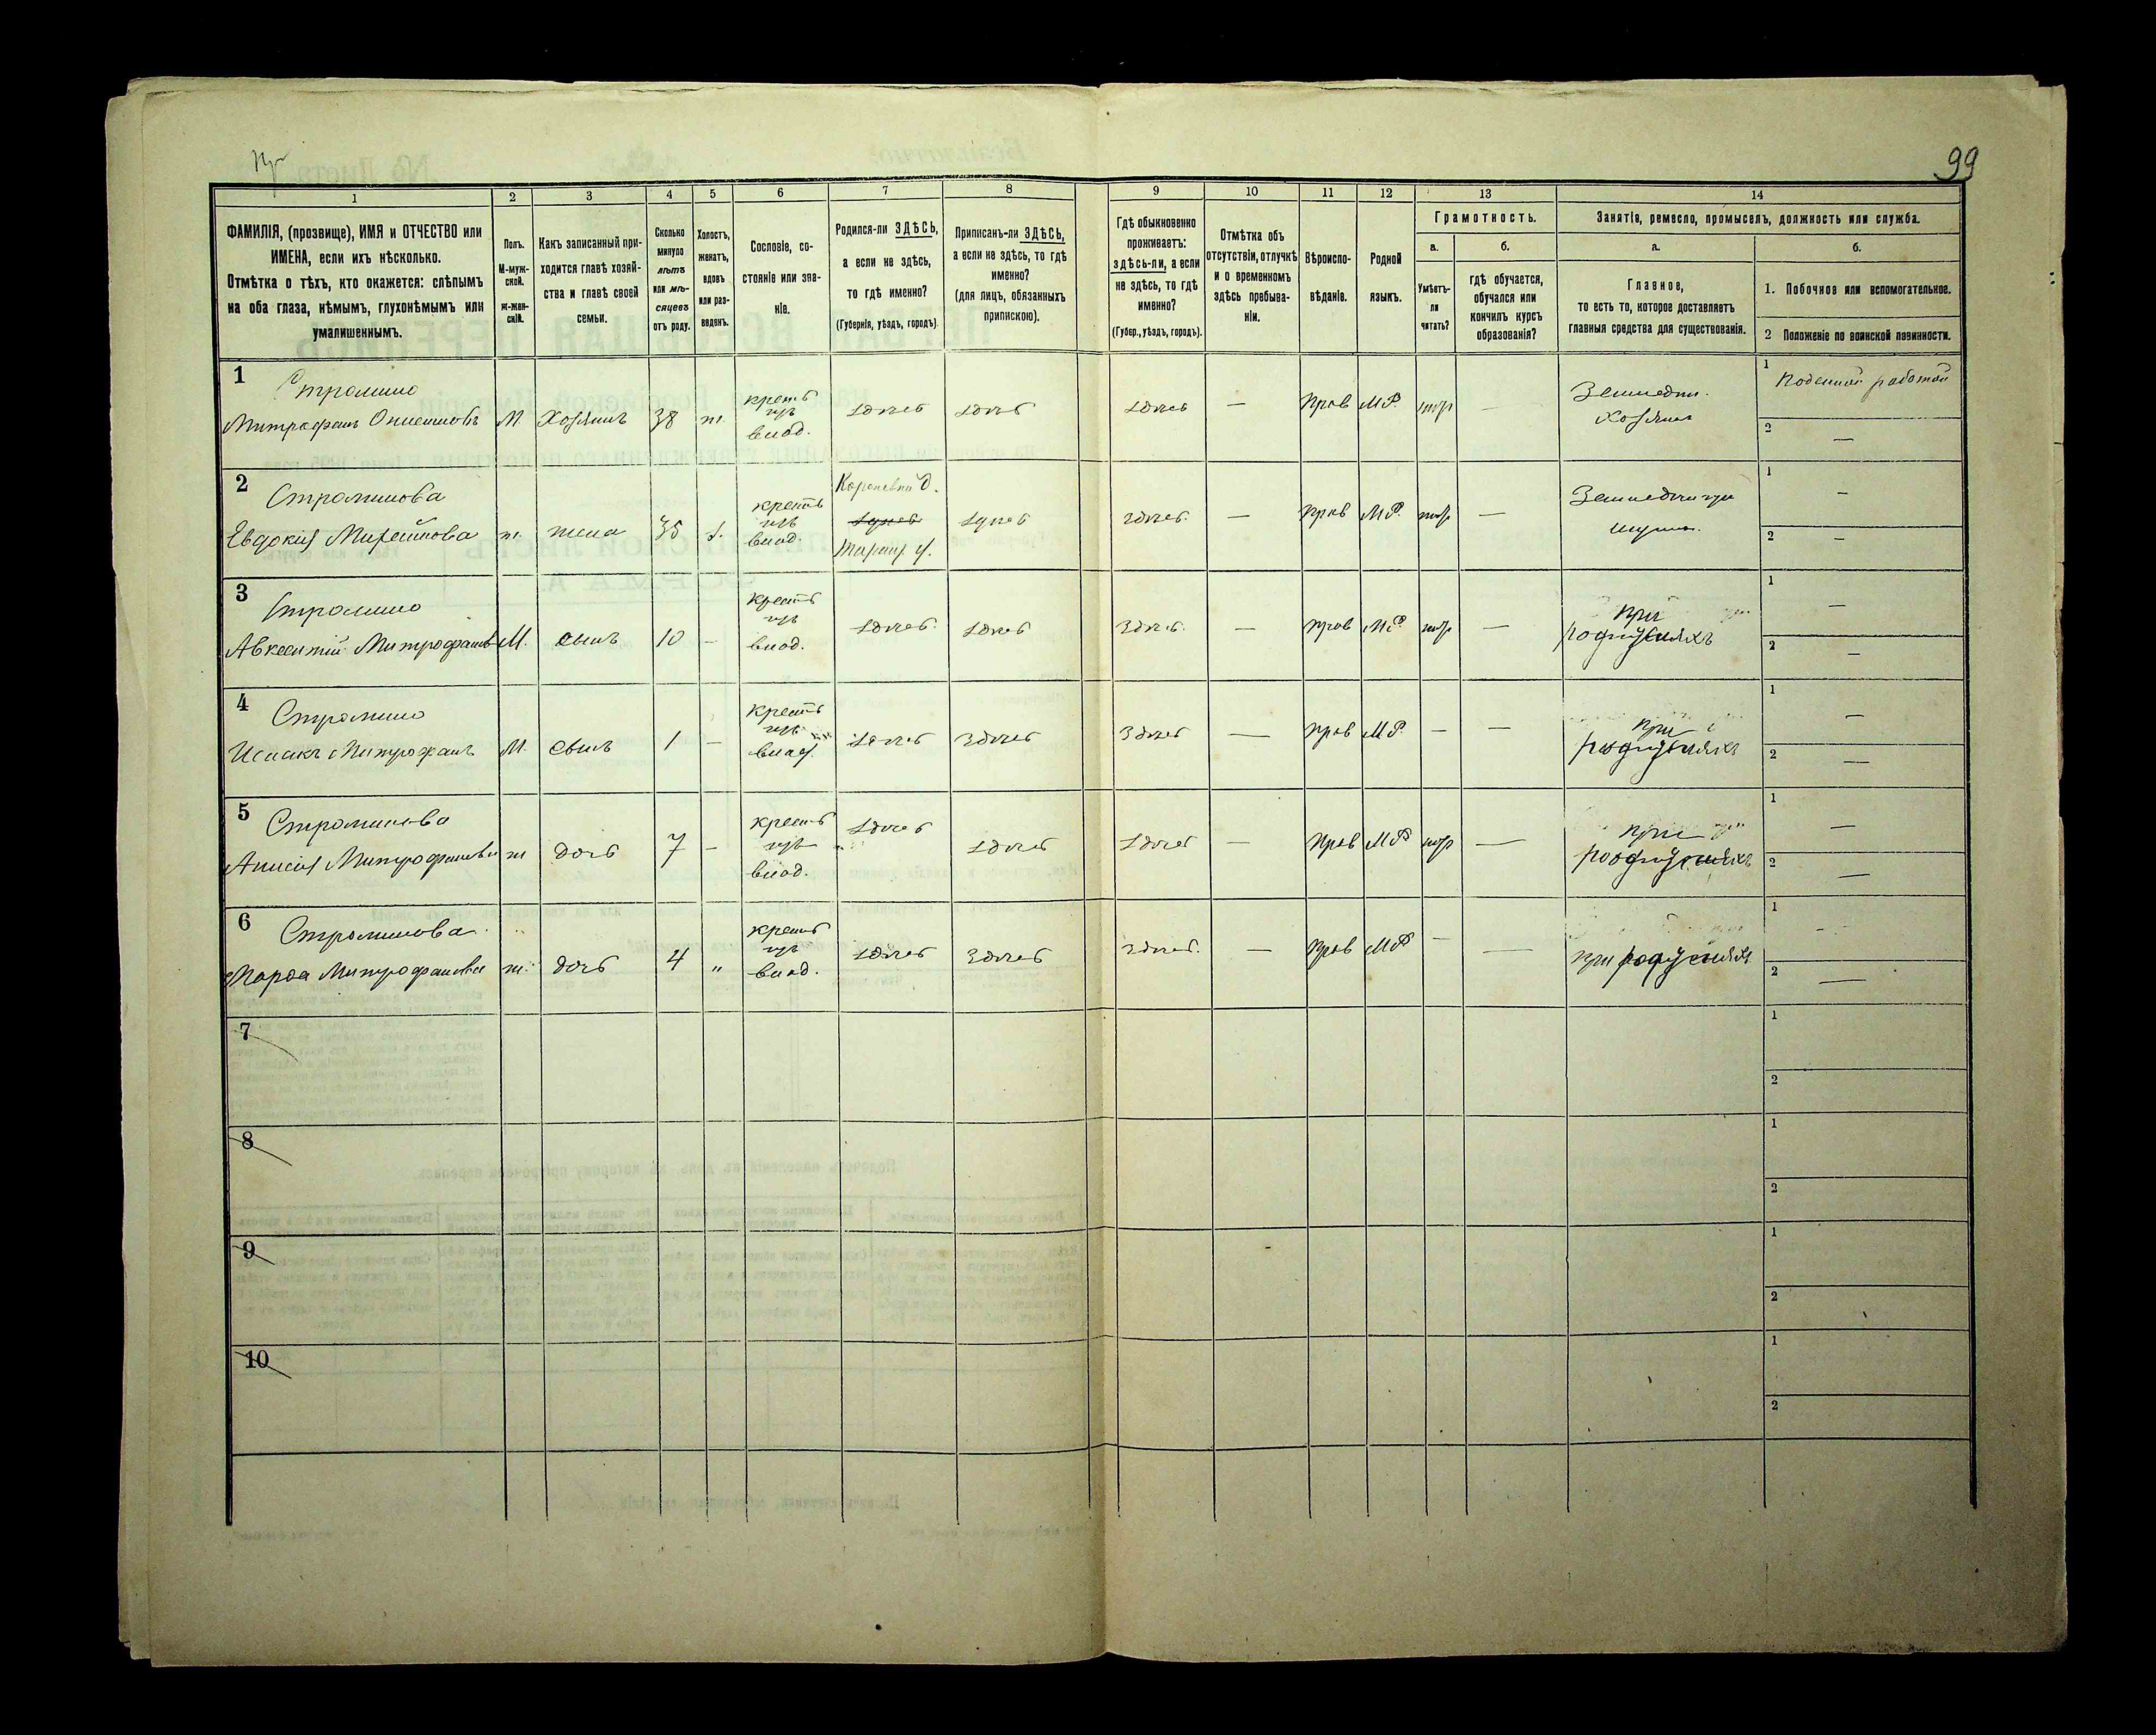 99
1
2
3
4
5
6
7
8
9
10
11
12
13
14
ФАМИЛІЯ, (прозвище), ИМЯ и ОТЧЕСТВО или
ИМЕНА, если ихъ нѣсколько.
Отмѣтка о тѣхъ, кто окажется: слѣпымъ
на оба глаза, нѣмымъ, глухонѣмымъ или
умалишеннымъ.
Полъ.
М-муж-
ской.
ж-жен-
скій.
Какъ записанный при-
ходится главѣ хозяй-
ства и главѣ своей
семьи.
Сколько
минуло
лѣтъ
или мѣ-
сяцевъ
отъ роду.
Холостъ,
женатъ,
вдовъ
или раз-
веденъ.
Сословіе, со-
стояніе или зва-
ніе.
Родился-ли ЗДѢСЬ,
а если не здѣсь,
то гдѣ именно?
(Губернія, уѣздъ, городъ).
Приписанъ-ли ЗДѢСЬ,
а если не здѣсь, то гдѣ
именно?
(для лицъ, обязанныхъ
припискою).
Гдѣ обыкновенно
проживаетъ:
здѣсь-ли, а если
не здѣсь, то гдѣ
именно?
(Губер., уѣздъ, городъ).
Отмѣтка объ
отсутствіи, отлучкѣ
и о временномъ
здѣсь пребыва-
ніи.
Вѣроиспо-
вѣданіе.
Родной
языкъ.
Грамотность.
а.
Умѣетъ-
ли
читать?
б.
гдѣ обучается,
обучался или
кончилъ курсъ
образованія?
Занятія, ремесло, промыселъ, должность или служба.
а.
Главное,
то есть то, которое доставляетъ
главныя средства для существованія.
б.
1. Побочное или вспомогательное.
2 Положеніе по воинской повинности.
1
Митрофанъ
М.
Хозяинъ
38
ж.
крест
изъ
влад.
здѣсь
здѣсь
здѣсь
—
прав
М.Р.
—
Хозяинъ
1 Поденной работой
2 —
2
Евдокія
ж.
жена
35
з.
крест
изъ
влад.
здѣсь
здѣсь
здѣсь.
—
прав
М.Р.
—
1 —
2 —
3
Авксентій Митрофановъ
М.
сынъ
10
—
крест
изъ
влад.
здѣсь.
здѣсь
здѣсь.
—
прав
М.Р.
—
при
родителяхъ
1 —
2 —
4
Исаакъ Митрофанъ
М.
сынъ
1
—
крест
изъ
влад.
здѣсь
здѣсь
здѣсь
—
прав
М.Р.
—
—
при
родителяхъ
1 —
2 —
5
Анисія Митрофанова
ж
дочь
7
—
крест
изъ
влад.
здѣсь
здѣсь
здѣсь
—
прав
М.Р.
—
при
родителяхъ
1 —
2 —
6
Марфа Митрофанова
ж.
дочь
4
"
крест
изъ
влад.
здѣсь
здѣсь
здѣсь.
—
прав
М.Р.
—
—
при родителяхъ
1 —
2 —
7
1
2
8
1
2
9
1
2
10
1
2